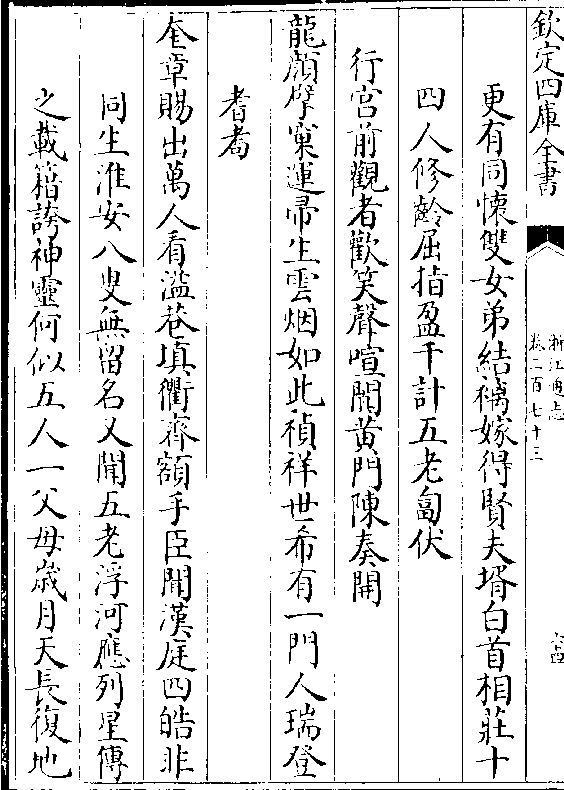 欽定四庫全書
浙江通志
卷二百七十三
六十四
更有同懷雙女弟結褵嫁得賢夫壻白首相莊十
四人修齡屈指盈千計五老匐伏
行宮前觀者歡笑聲喧闐黃門陳奏開
龍顏擘窠運帚生雲烟如此禎祥世希有一門人瑞登
耆耈
奎章賜出萬人看溢巷填衢齊額手臣聞漢庭四皓非
同生淮安八叟無留名又聞五老浮河應列星傳
之載籍誇神靈何似五人一父母歲月天長復地